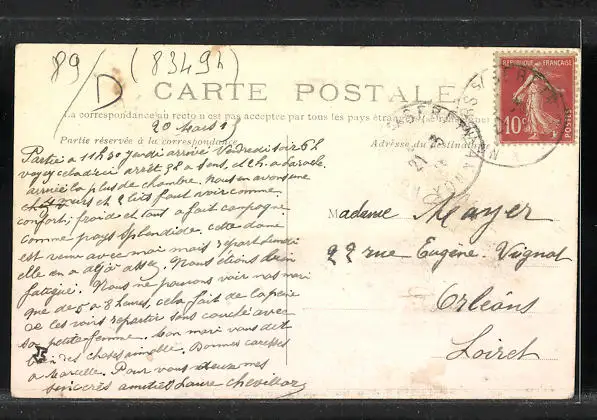 89/D (83494)
REPUBLIQUE FRANÇAISE
10c
POSTES
CARTE POSTALE
La correspondance au recto n'est pas acceptée par tous les pays étrangers
20 Mars 15
Partie réservée à la correspondance
Adresse du destinataire
Partie à 11h30 jeudi arrivé Vendredi soir 6h
voyez cela d'ici arrêt 3h à Sens, et 2h à Laroche
arrivée là plus de chambre. Nous en avons une
murs et 2 lits faut voir comme
confort, froide et tout à fait campagne
comme pays splendide. cette dame
est venu avec moi mais repart lundi
elle en a déjà assez. Nous étions bien
fatigué. Nous ne pouvons voir nos mari
que de 5 à 8 heures, cela fait de la peine
de les voirs repartir sans couché avec
sa petite femme. Mon mari vous dit
bien des choses aimable. Bonnes caresses
à Marcelle. Pour vous deux mes
sincères amitiés Laure Chevillar
Madame Mayer
22 rue Eugène Vignat
Orléans
Loiret